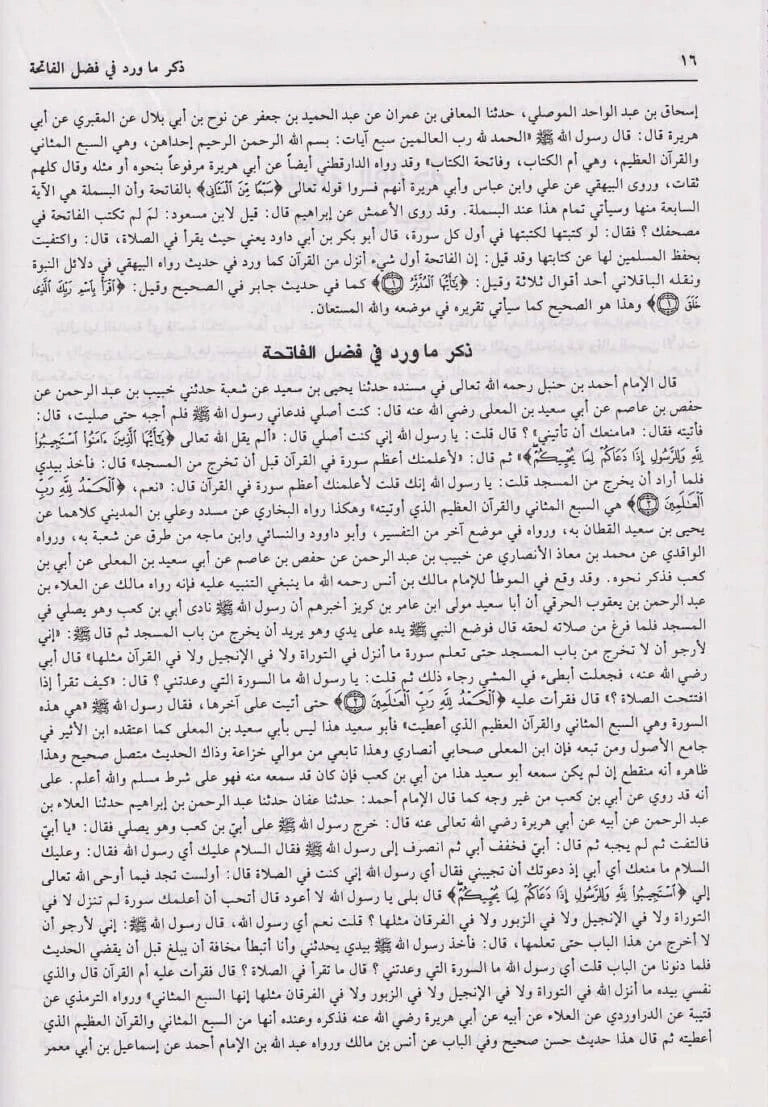 ١٦
ذكر ما ورد في فضل الفاتحة
إسحاق بن عبد الواحد الموصلي، حدثنا المعافى بن عمران عن عبد الحميد بن جعفر عن نوح بن أبي بلال عن المقبري عن أبي
هريرة قال: قال رسول الله ﷺ «الحمد لله رب العالمين سبع آيات: بسم الله الرحمن الرحيم إحداهن، وهي السبع المثاني
والقرآن العظيم، وهي أم الكتاب، وفاتحة الكتاب» وقد رواه الدارقطني أيضاً عن أبي هريرة مرفوعاً بنحوه أو مثله وقال كلهم
ثقات، وروى البيهقي عن علي وابن عباس وأبي هريرة أنهم فسروا قوله تعالى ﴿سَبْعًا مِّنَ ٱلْمَثَانِى﴾ بالفاتحة وأن البسملة هي الآية
السابعة منها وسيأتي تمام هذا عند البسملة. وقد روى الأعمش عن إبراهيم قال: قيل لابن مسعود: لمَ لم تكتب الفاتحة في
مصحفك ؟ فقال: لو كتبتها لكتبتها في أول كل سورة، قال أبو بكر بن أبي داود يعني حيث يقرأ في الصلاة، قال: واكتفيت
بحفظ المسلمين لها عن كتابتها وقد قيل: إن الفاتحة أول شيء أنزل من القرآن كما ورد في حديث رواه البيهقي في دلائل النبوة
ونقله الباقلاني أحد أقوال ثلاثة وقيل: ﴿يَٰٓأَيُّهَا ٱلْمُدَّثِّرُ ١﴾ كما في حديث جابر في الصحيح وقيل: ﴿ٱقْرَأْ بِٱسْمِ رَبِّكَ ٱلَّذِى
خَلَقَ ١﴾ وهذا هو الصحيح كما سيأتي تقريره في موضعه والله المستعان.
ذكر ما ورد في فضل الفاتحة
قال الإمام أحمد بن حنبل رحمه الله تعالى في مسنده حدثنا يحيى بن سعيد عن شعبة حدثني خبيب بن عبد الرحمن عن
حفص بن عاصم عن أبي سعيد بن المعلى رضي الله عنه قال: كنت أصلي فدعاني رسول الله ﷺ فلم أجبه حتى صليت، قال:
فأتيته فقال: «مامنعك أن تأتيني» ؟ قال قلت: يا رسول الله إني كنت أصلي قال: «ألم يقل الله تعالى ﴿يَٰٓأَيُّهَا ٱلَّذِينَ ءَامَنُوا۟ ٱسْتَجِيبُوا۟
لِلَّهِ وَلِلرَّسُولِ إِذَا دَعَاكُمْ لِمَا يُحْيِيكُمْ﴾» ثم قال: «لأعلمنك أعظم سورة في القرآن قبل أن تخرج من المسجد» قال: فأخذ بيدي
فلما أراد أن يخرج من المسجد قلت: يا رسول الله إنك قلت لأعلمنك أعظم سورة في القرآن قال: «نعم، ﴿ٱلْحَمْدُ لِلَّهِ رَبِّ
ٱلْعَٰلَمِينَ ٢﴾ هي السبع المثاني والقرآن العظيم الذي أوتيته» وهكذا رواه البخاري عن مسدد وعلي بن المديني كلاهما عن
يحيى بن سعيد القطان به، ورواه في موضع آخر من التفسير، وأبو داوود والنسائي وابن ماجه من طرق عن شعبة به، ورواه
الواقدي عن محمد بن معاذ الأنصاري عن خبيب بن عبد الرحمن عن حفص بن عاصم عن أبي سعيد بن المعلى عن أبي بن
كعب فذكر نحوه. وقد وقع في الموطأ للإمام مالك بن أنس رحمه الله ما ينبغي التنبيه عليه فإنه رواه مالك عن العلاء بن
عبد الرحمن بن يعقوب الحرقي أن أبا سعيد مولى ابن عامر بن كريز أخبرهم أن رسول الله ﷺ نادى أبي بن كعب وهو يصلي في
المسجد فلما فرغ من صلاته لحقه قال فوضع النبي ﷺ يده على يدي وهو يريد أن يخرج من باب المسجد ثم قال ﷺ: «إني
لأرجو أن لا تخرج من باب المسجد حتى تعلم سورة ما أنزل في التوراة ولا في الإنجيل ولا في القرآن مثلها» قال أبي
رضي الله عنه، فجعلت أبطىء في المشي رجاء ذلك ثم قلت: يا رسول الله ما السورة التي وعدتني ؟ قال: «كيف تقرأ إذا
افتتحت الصلاة ؟» قال فقرأت عليه ﴿ٱلْحَمْدُ لِلَّهِ رَبِّ ٱلْعَٰلَمِينَ ٢﴾ حتى أتيت على آخرها، فقال رسول الله ﷺ «هي هذه
السورة وهي السبع المثاني والقرآن العظيم الذي أعطيت» فأبو سعيد هذا ليس بأبي سعيد بن المعلى كما اعتقده ابن الأثير في
جامع الأصول ومن تبعه فإن ابن المعلى صحابي أنصاري وهذا تابعي من موالي خزاعة وذاك الحديث متصل صحيح وهذا
ظاهره أنه منقطع إن لم يكن سمعه أبو سعيد هذا من أبي بن كعب فإن كان قد سمعه منه فهو على شرط مسلم والله أعلم. على
أنه قد روي عن أبي بن كعب من غير وجه كما قال الإمام أحمد: حدثنا عفان حدثنا عبد الرحمن بن إبراهيم حدثنا العلاء بن
عبد الرحمن عن أبيه عن أبي هريرة رضي الله تعالى عنه قال: خرج رسول الله ﷺ على أبيّ بن كعب وهو يصلي فقال: «يا أبيّ
فالتفت ثم لم يجبه ثم قال: أبيّ فخفف أبي ثم انصرف إلى رسول الله ﷺ فقال السلام عليك أي رسول الله فقال: وعليك
السلام ما منعك أي أبي إذ دعوتك أن تجيبني فقال أي رسول الله إني كنت في الصلاة قال: أولست تجد فيما أوحى الله تعالى
إلي ﴿ٱسْتَجِيبُوا۟ لِلَّهِ وَلِلرَّسُولِ إِذَا دَعَاكُمْ لِمَا يُحْيِيكُمْ﴾ قال بلى يا رسول الله لا أعود قال أتحب أن أعلمك سورة لم تنزل لا في
التوراة ولا في الإنجيل ولا في الزبور ولا في الفرقان مثلها ؟ قلت نعم أي رسول الله، قال رسول الله ﷺ: إني لأرجو أن
لا أخرج من هذا الباب حتى تعلمها، قال: فأخذ رسول الله ﷺ بيدي يحدثني وأنا أتبطأ مخافة أن يبلغ قبل أن يقضي الحديث
فلما دنونا من الباب قلت أي رسول الله ما السورة التي وعدتني ؟ قال ما تقرأ في الصلاة ؟ قال فقرأت عليه أم القرآن قال والذي
نفسي بيده ما أنزل الله في التوراة ولا في الإنجيل ولا في الزبور ولا في الفرقان مثلها إنها السبع المثاني» ورواه الترمذي عن
قتيبة عن الدراوردي عن العلاء عن أبيه عن أبي هريرة رضي الله عنه فذكره وعنده أنها من السبع المثاني والقرآن العظيم الذي
أعطيته ثم قال هذا حديث حسن صحيح وفي الباب عن أنس بن مالك ورواه عبد الله بن الإمام أحمد عن إسماعيل بن أبي معمر